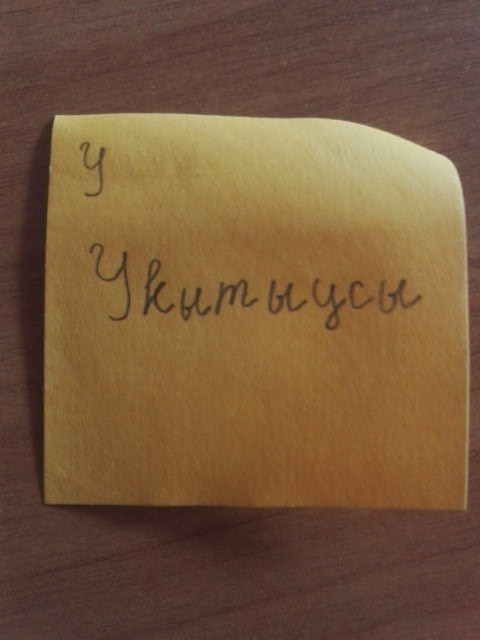 У
Укытыусы